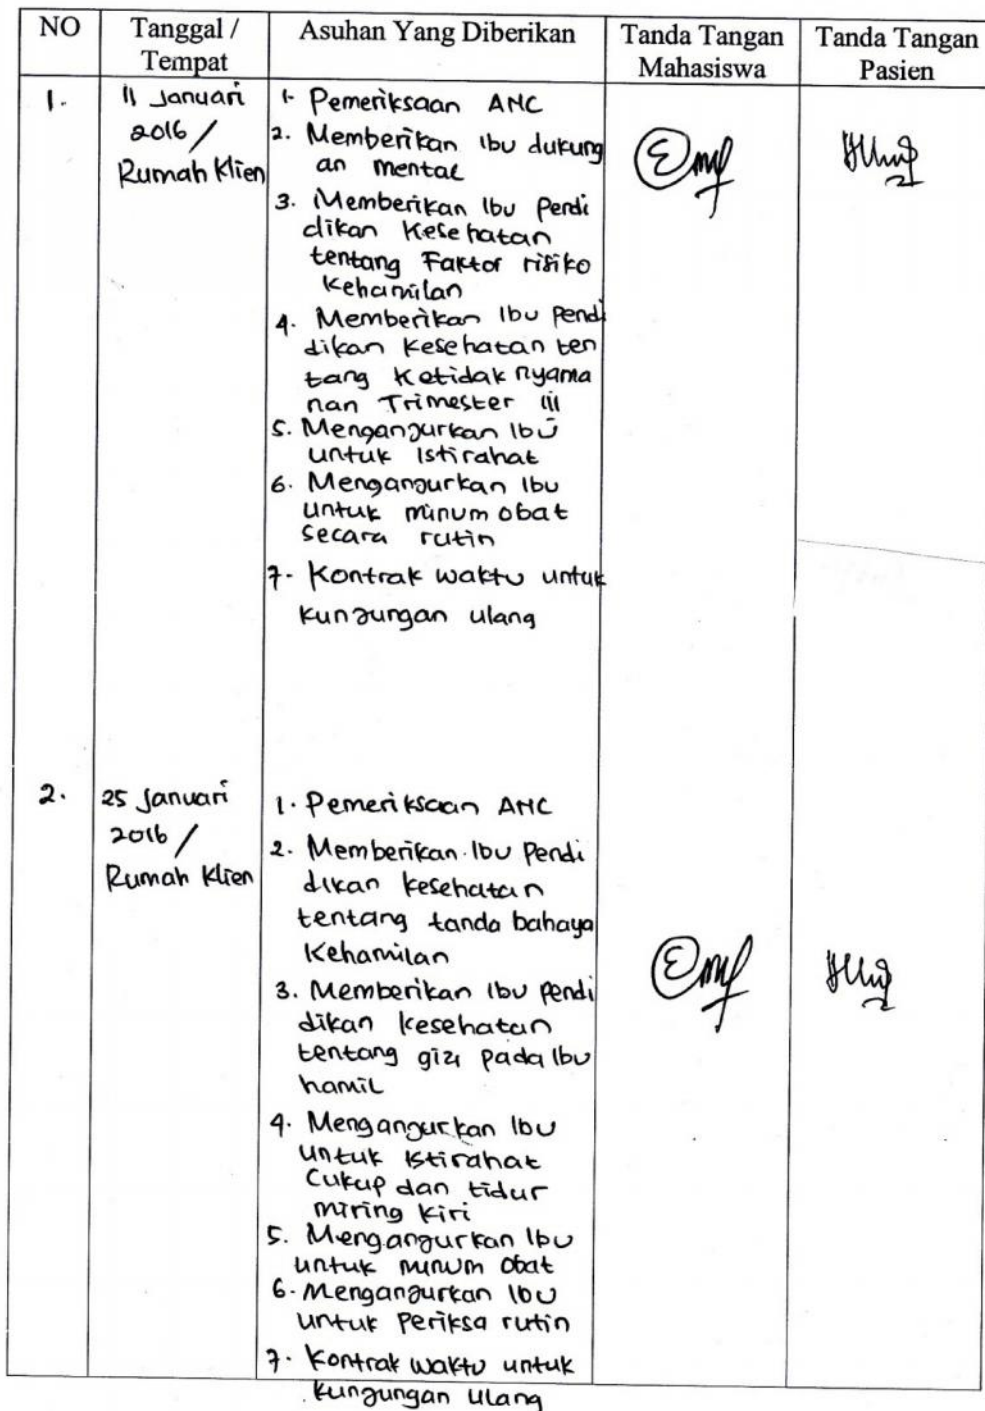 NO Tanggal / Tempat Asuhan Yang Diberikan Tanda Tangan Mahasiswa Tanda Tangan Pasien
1. 11 Januari
2016 /
Rumah Klien
1. Pemeriksaan ANC
2. Memberikan Ibu dukung
an mental
3. Memberikan Ibu Pendi
dikan Kesehatan
tentang Faktor risiko
Kehamilan
4. Memberikan Ibu Pendi
dikan Kesehatan ten
tang Ketidak nyama
nan Trimester III
5. Menganjurkan Ibu
untuk Istirahat
6. Menganjurkan Ibu
untuk minum obat
secara rutin
7. Kontrak waktu untuk
kunjungan ulang
2. 25 Januari
2016 /
Rumah Klien
1. Pemeriksaan ANC
2. Memberikan Ibu Pendi
dikan kesehatan
tentang tanda bahaya
Kehamilan
3. Memberikan Ibu Pendi
dikan kesehatan
tentang gizi pada Ibu
hamil
4. Menganjurkan Ibu
untuk Istirahat
Cukup dan tidur
miring kiri
5. Menganjurkan Ibu
untuk minum obat
6. Menganjurkan Ibu
untuk Periksa rutin
7. Kontrak waktu untuk
kunjungan ulang